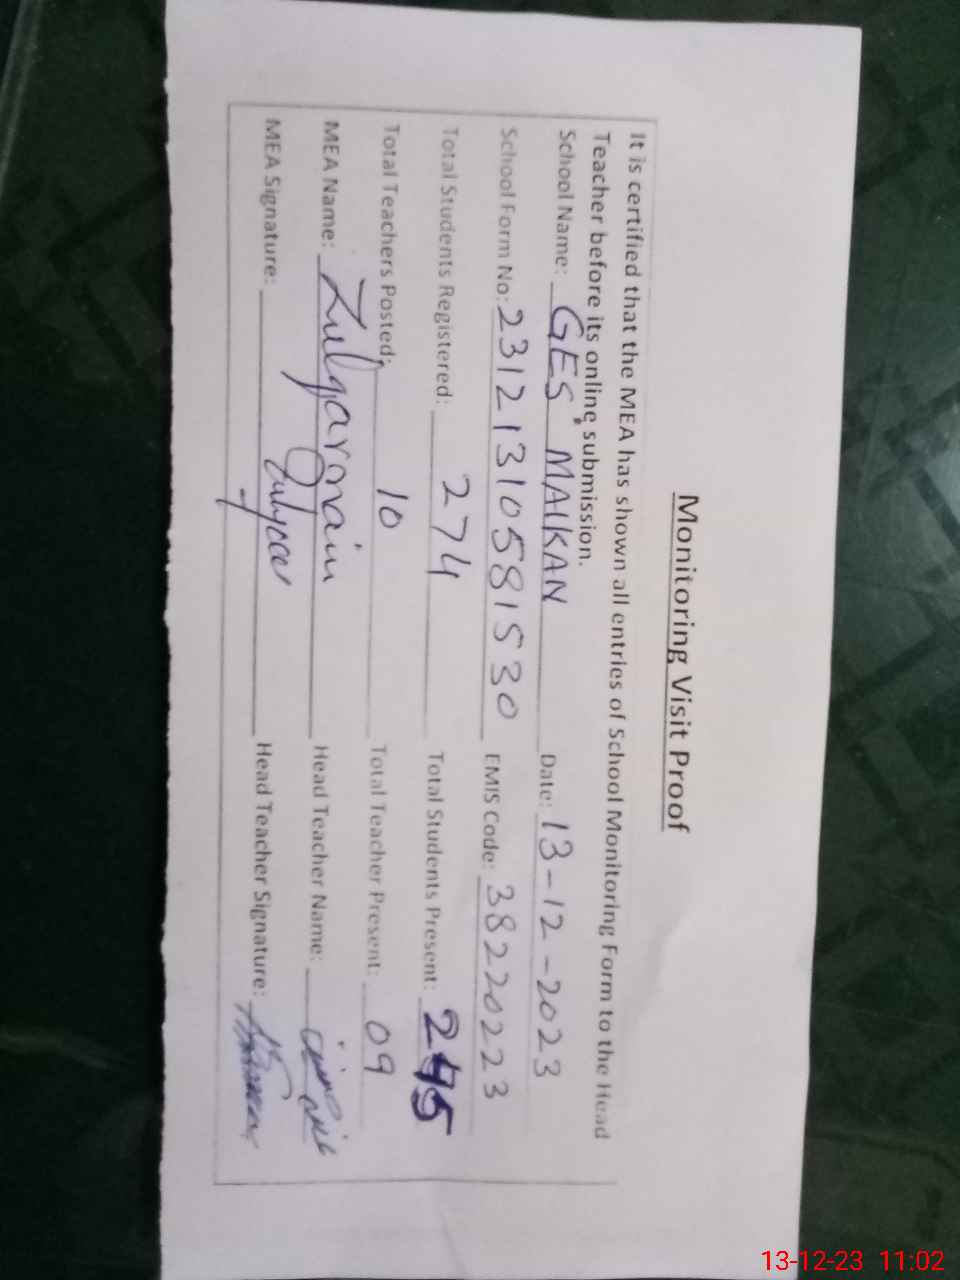 Monitoring Visit Proof
It is certified that the MEA has shown all entries of School Monitoring Form to the Head
Teacher before its online submission.
School Name: GES MAIKAN Date: 13-12-2023
School Form No: 23121310581530 EMIS Code: 38220223
Total Students Registered: 274 Total Students Present: 245
Total Teachers Posted: 10 Total Teacher Present: 09
MEA Name: Zulqarnain Head Teacher Name:
MEA Signature: Head Teacher Signature:
13-12-23 11:02